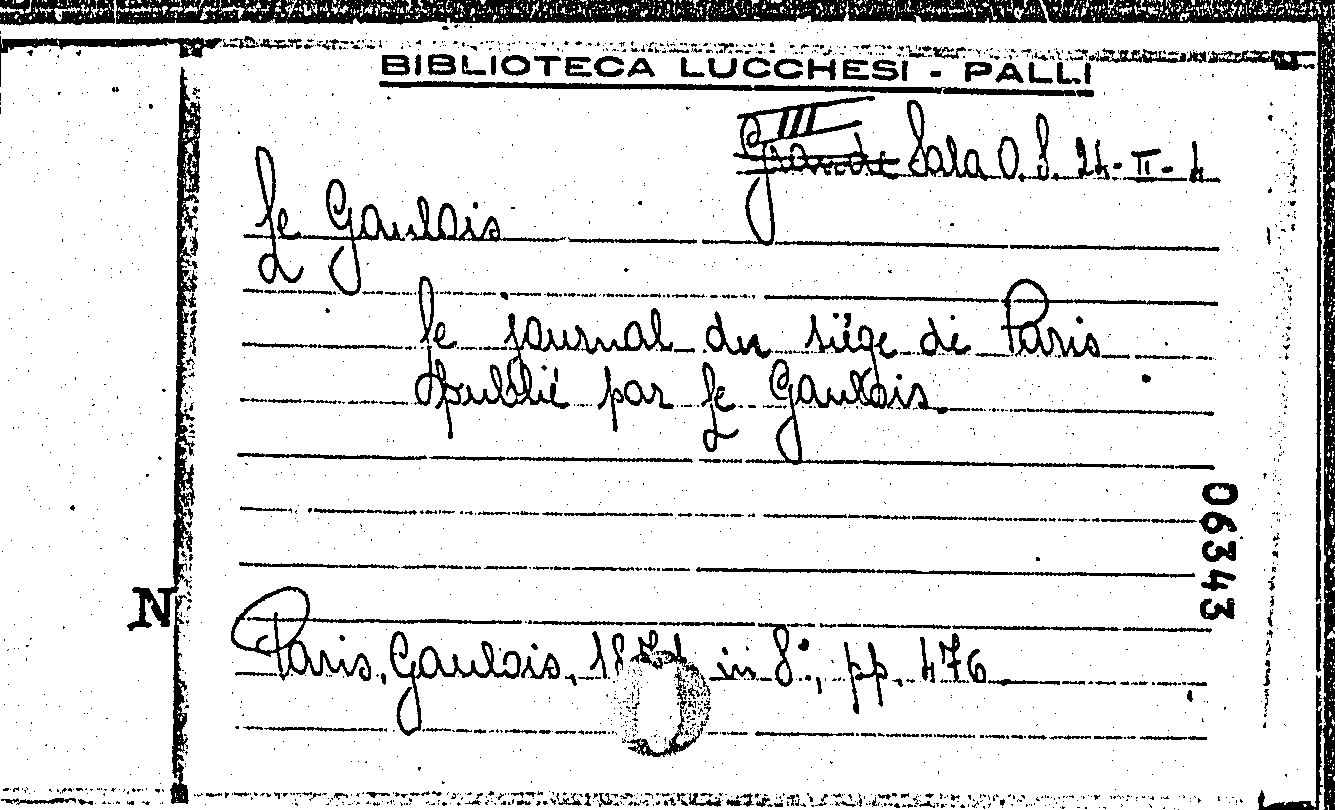 BIBLIOTECA LUCCHESI - PALLI
III
Grande Sala O. S. 24-II-4
Le Gaulois
Le journal du siège de Paris
publié par Le Gaulois.
06343
N
Paris, Gaulois, 1871 in 8°, pp. 476